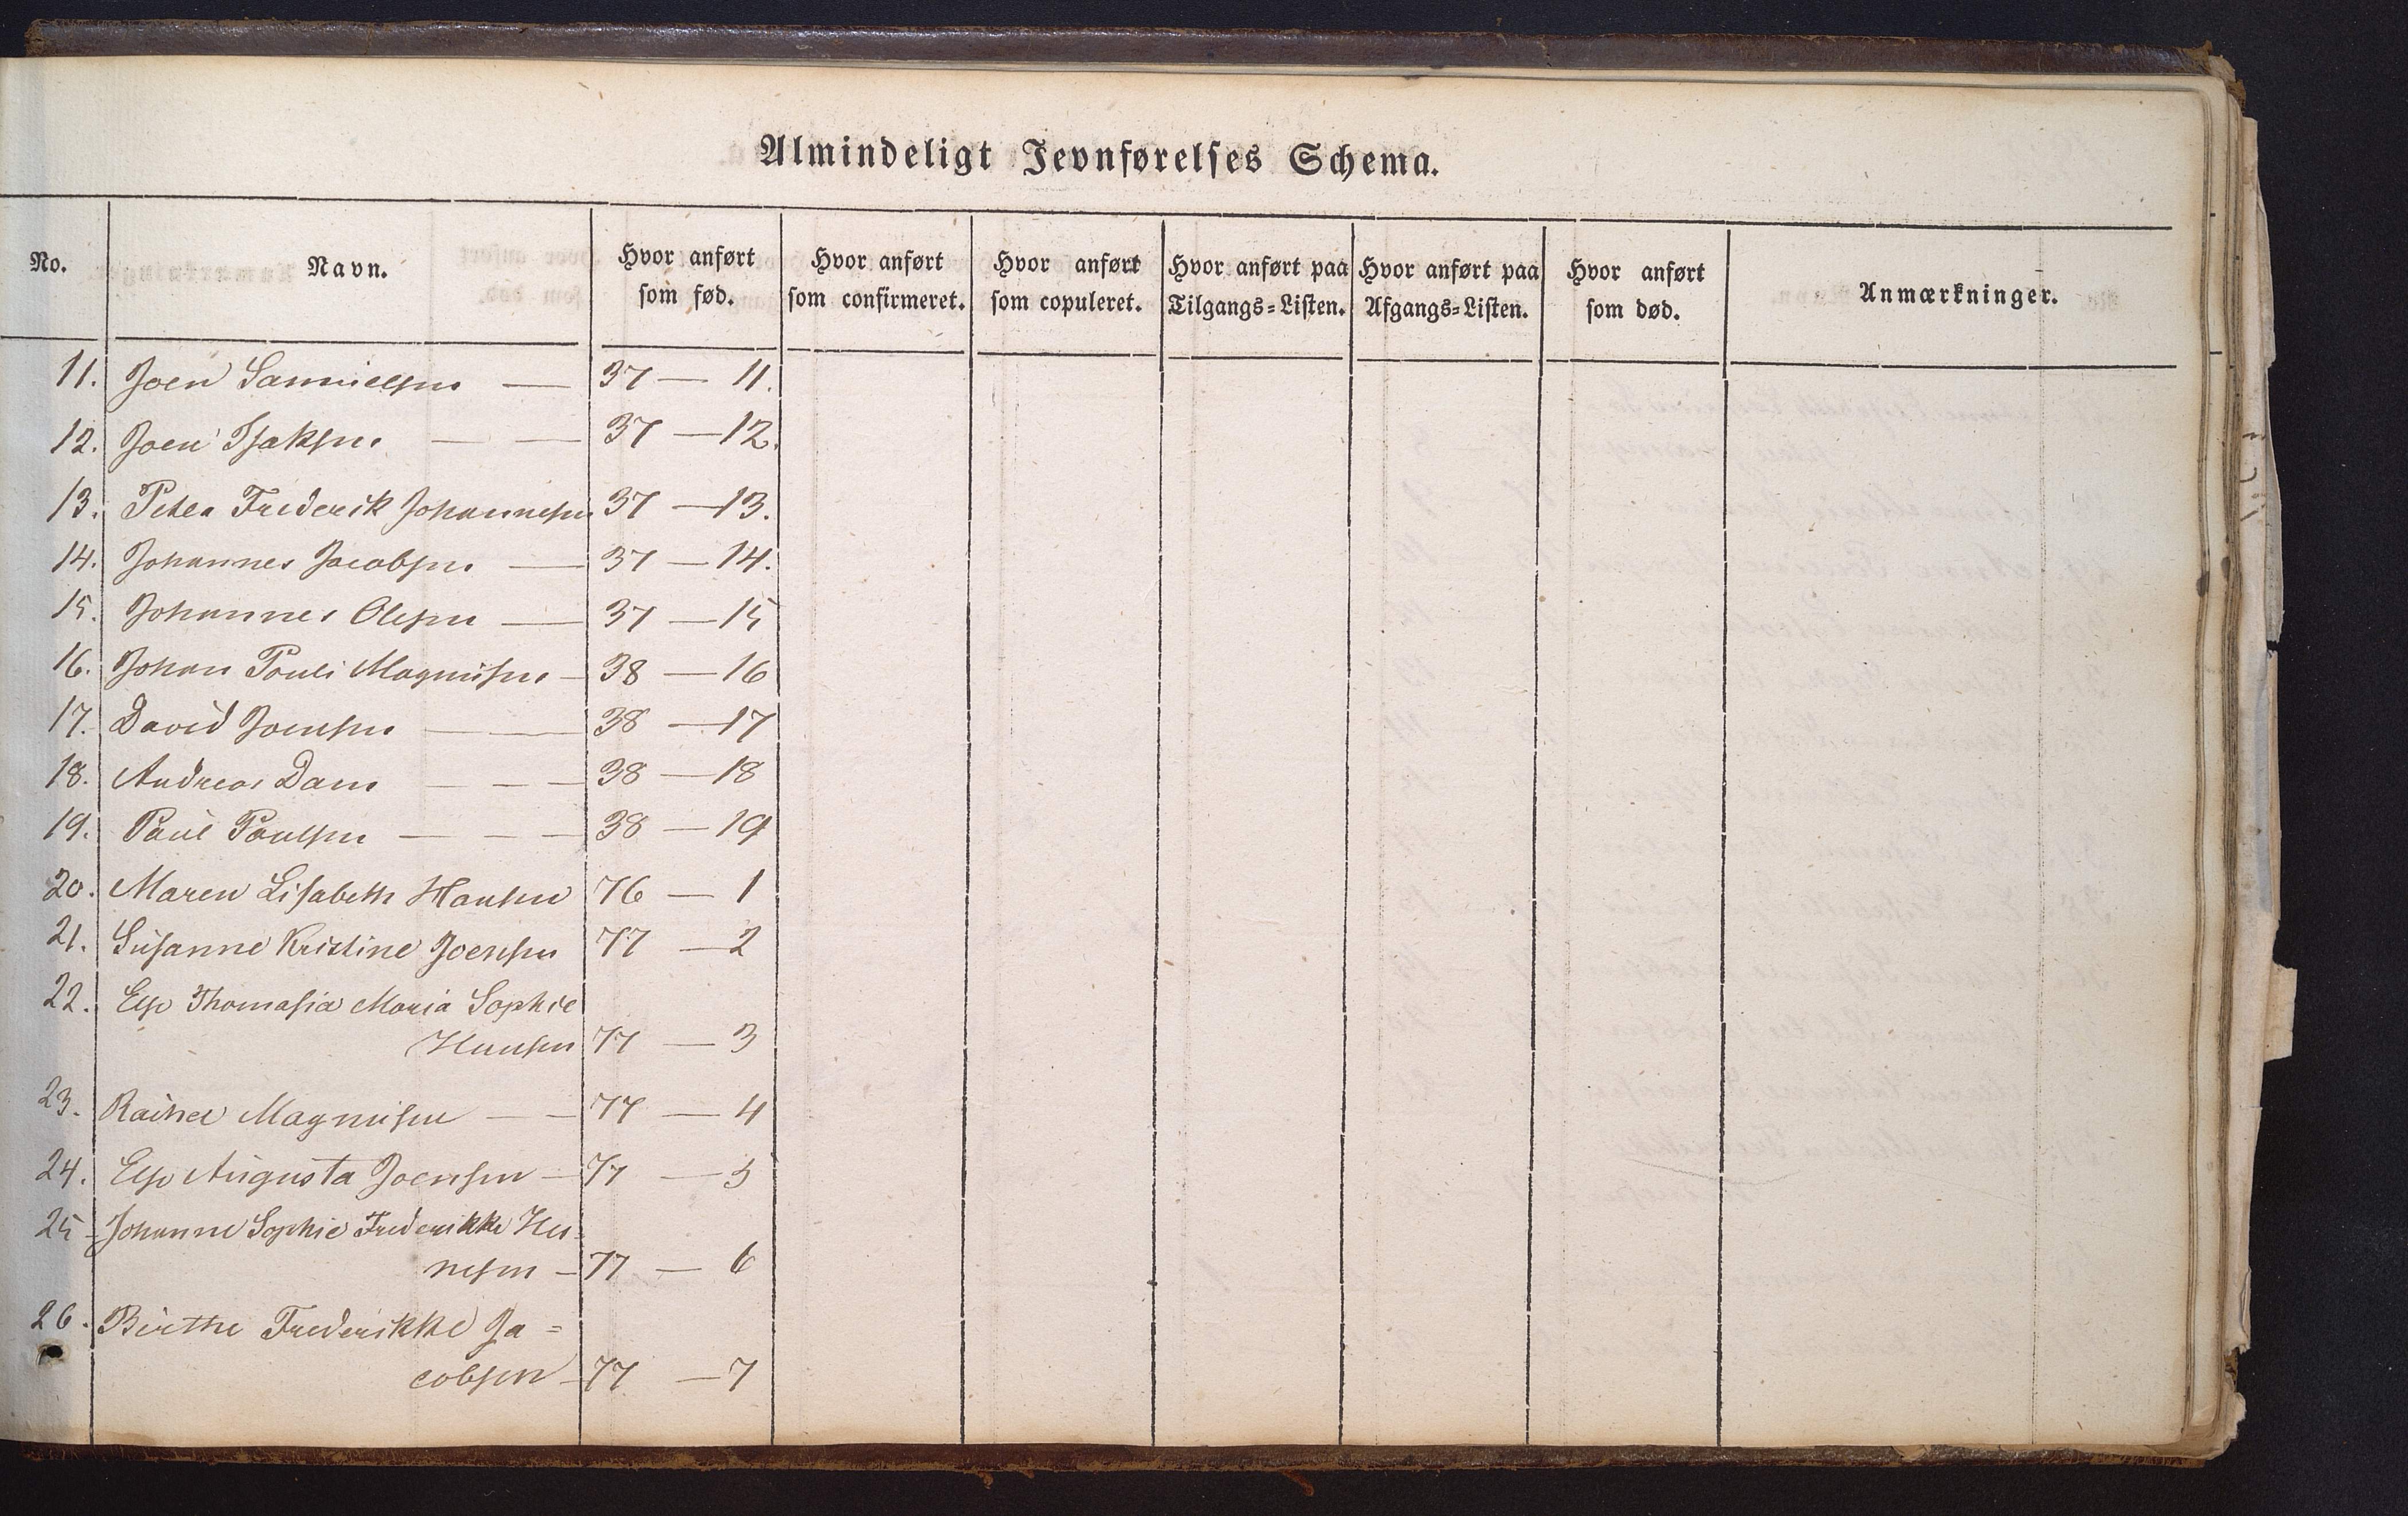 Almindeligt Jevnførelses Schema.
No. Navn. Hvor anført som fød. Hvor anført som confirmeret. Hvor anført som copuleret. Hvor anført paa Tilgangs-Listen. Hvor anført paa Afgangs-Listen. Hvor anført som død. Anmærkninger.
11. Joen Samuelsen — 37 — 11.
12. Joen Isaksen — — 37 — 12.
13. Peter Frederik Johannesen 37 — 13.
14. Johannes Jacobsen — 37 — 14.
15. Johannes Olesen — 37 — 15
16. Johan Pouli Magnusen — 38 — 16
17. David Joensen — — 38 — 17
18. Andreas Dam — — — 38 — 18
19. Paul Paulsen — — — 38 — 19
20. Maren Lisabeth Hansen 76 — 1
21. Susanne Kristine Joensen 77 — 2
22. Else Thomasia Maria Sophie
Hansen 77 — 3
23. Rachel Magnusen — — 77 — 4
24. Else Augusta Joensen — 77 — 5
25 Johanne Sophie Frederikke Hen-
nesen — 77 — 6
26. Birthe Frederikke Ja=
cobsen — 77 — 7